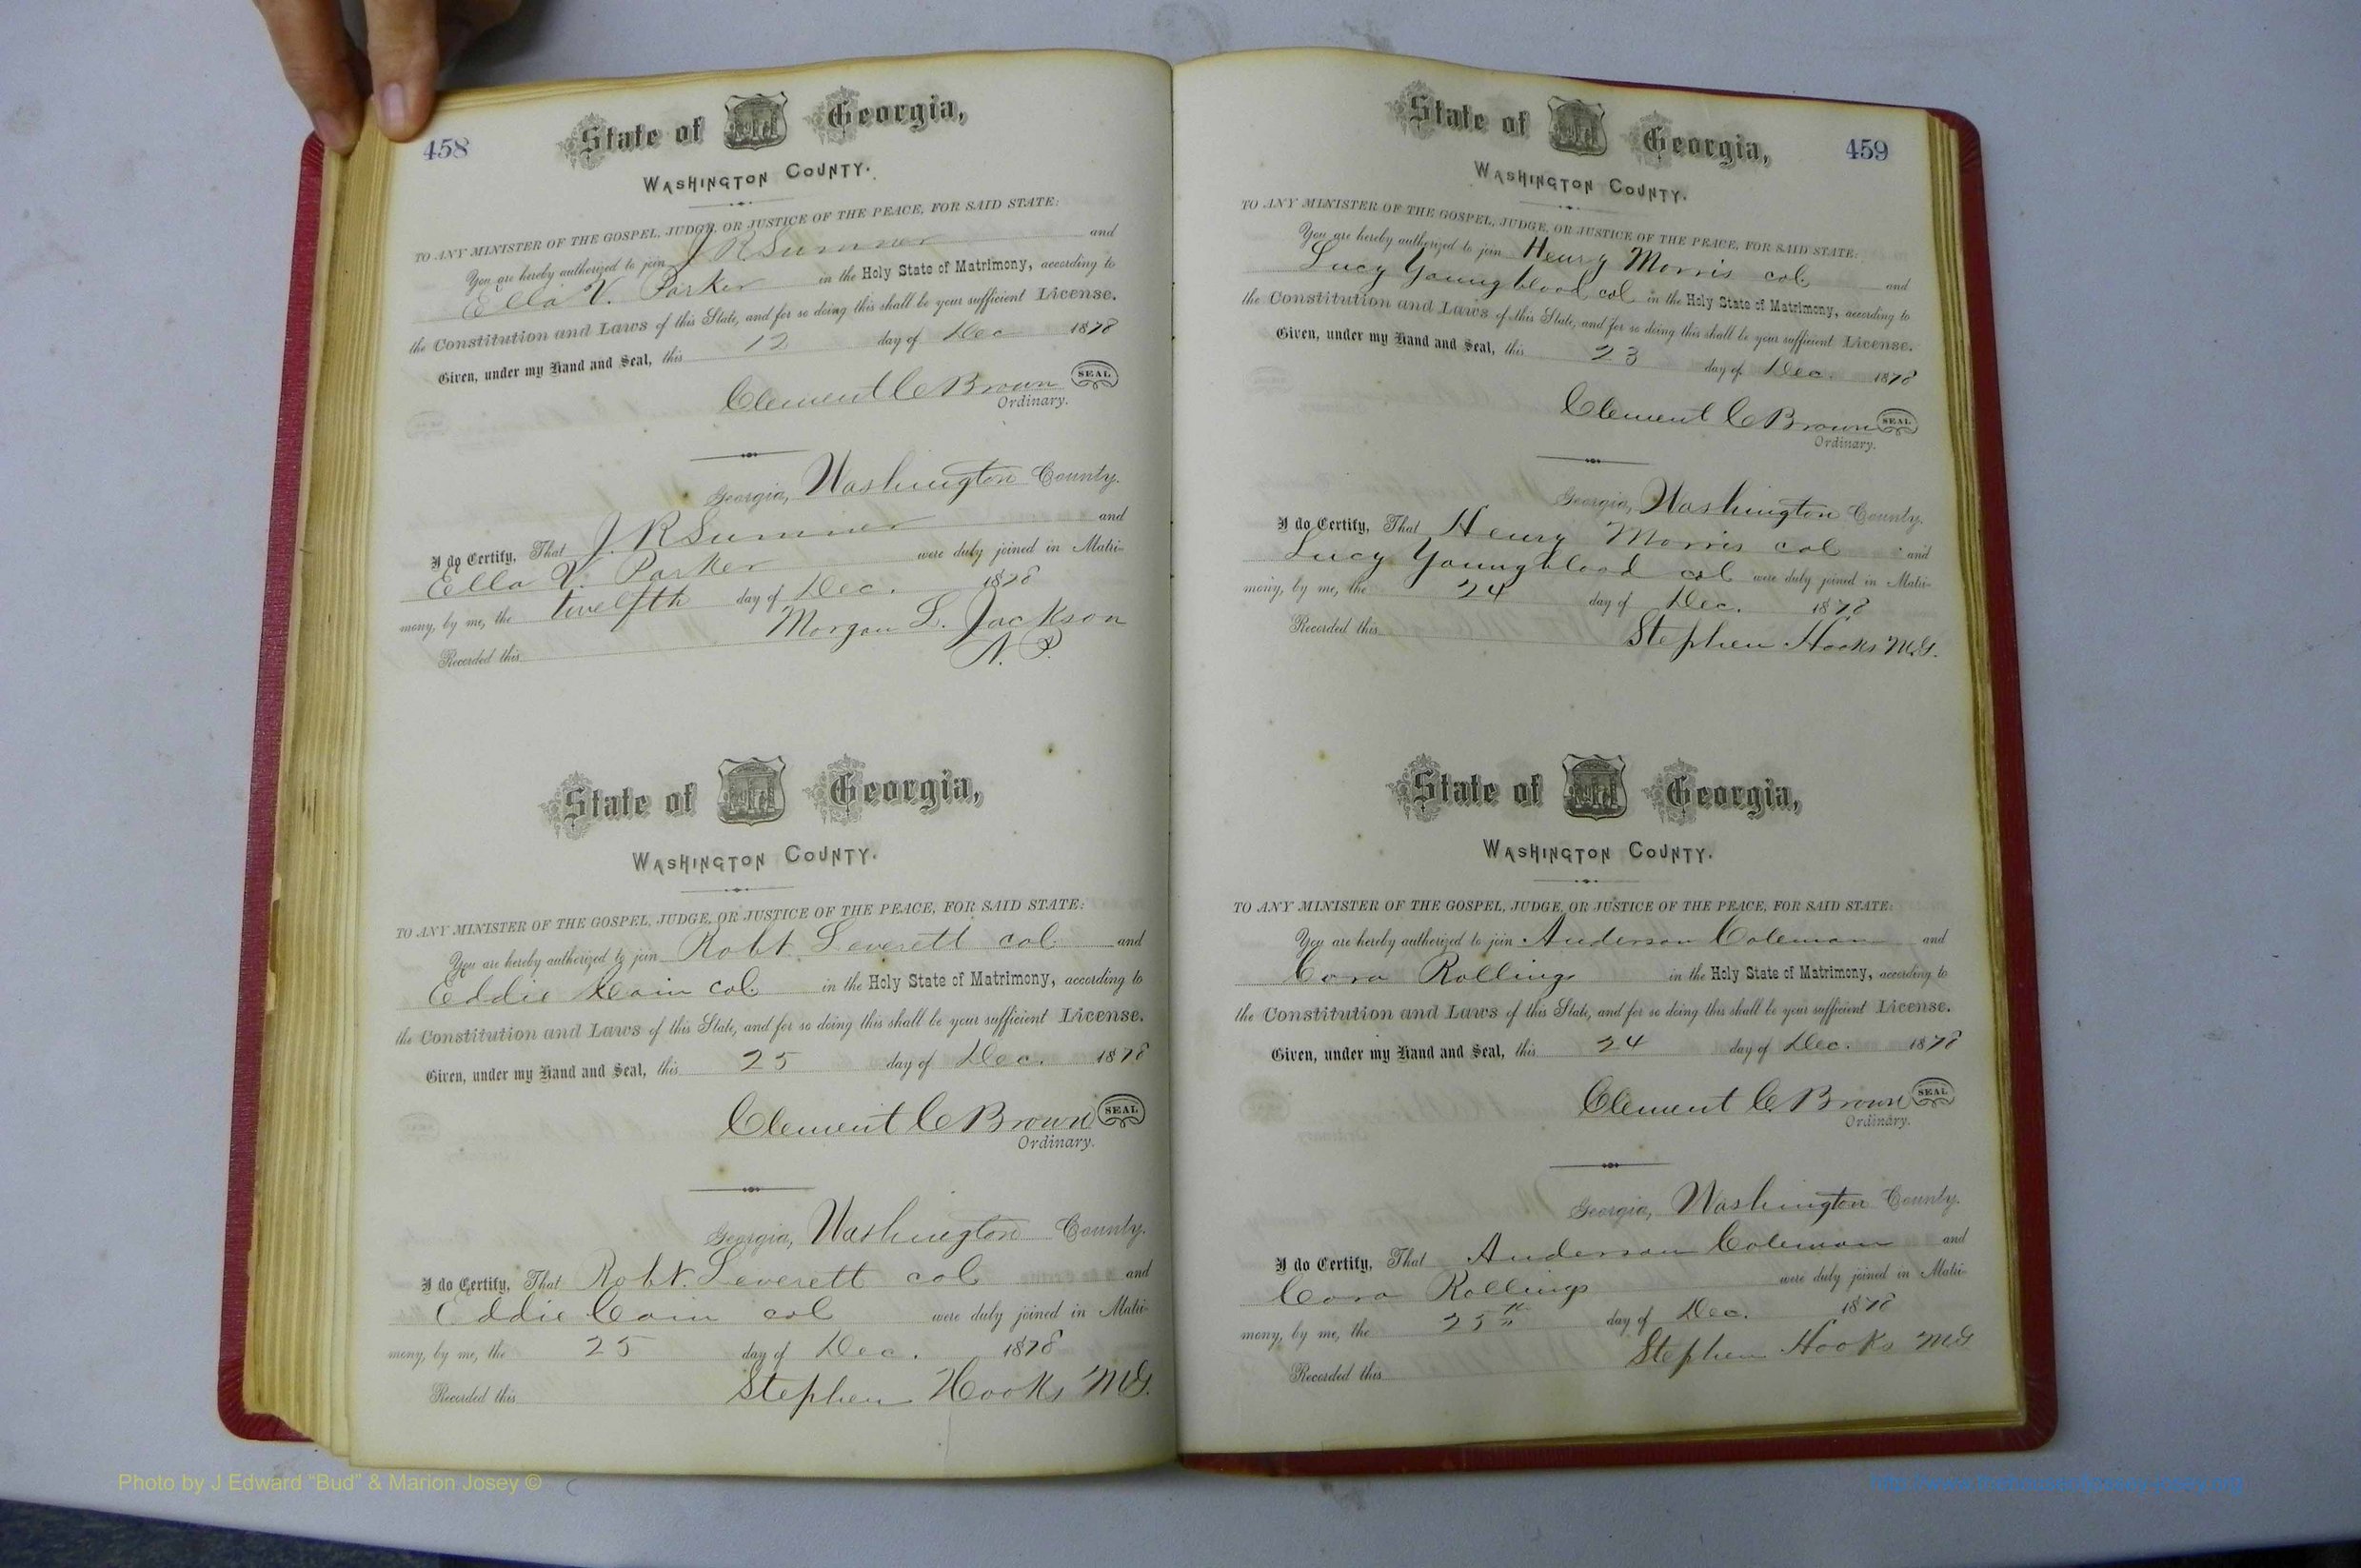 458
State of Georgia,
WASHINGTON COUNTY.
TO ANY MINISTER OF THE GOSPEL, JUDGE, OR JUSTICE OF THE PEACE, FOR SAID STATE:
You are hereby authorized to join J R Summer and
Ella V. Parker in the Holy State of Matrimony, according to
the Constitution and Laws of this State, and for so doing this shall be your sufficient License.
Given, under my Hand and Seal, this 12 day of Dec 1878
Clement C Brown SEAL
Ordinary.
Georgia, Washington County.
I do Certify, That J. R Summer and
Ella V. Parker were duly joined in Matri-
mony, by me, the twelfth day of Dec. 1878
Morgan L. Jackson
Recorded this N. P.
State of Georgia,
WASHINGTON COUNTY.
TO ANY MINISTER OF THE GOSPEL, JUDGE, OR JUSTICE OF THE PEACE, FOR SAID STATE:
You are hereby authorized to join Robt. Leverett col and
Eddie Cain col in the Holy State of Matrimony, according to
the Constitution and Laws of this State, and for so doing this shall be your sufficient License.
Given, under my Hand and Seal, this 25 day of Dec. 1878
Clement C Brown SEAL
Ordinary.
Georgia, Washington County.
I do Certify, That Robt. Leverett col and
Eddie Cain col were duly joined in Matri-
mony, by me, the 25 day of Dec. 1878
Recorded this Stephen Hooks MG.
459
State of Georgia,
WASHINGTON COUNTY.
TO ANY MINISTER OF THE GOSPEL, JUDGE, OR JUSTICE OF THE PEACE, FOR SAID STATE:
You are hereby authorized to join Henry Morris col and
Lucy Youngblood col in the Holy State of Matrimony, according to
the Constitution and Laws of this State, and for so doing this shall be your sufficient License.
Given, under my Hand and Seal, this 23 day of Dec. 1878
Clement C Brown SEAL
Ordinary.
Georgia, Washington County.
I do Certify, That Henry Morris col and
Lucy Youngblood col were duly joined in Matri-
mony, by me, the 24 day of Dec. 1878
Recorded this Stephen Hooks M.G.
State of Georgia,
WASHINGTON COUNTY.
TO ANY MINISTER OF THE GOSPEL, JUDGE, OR JUSTICE OF THE PEACE, FOR SAID STATE:
You are hereby authorized to join Anderson Coleman and
Cora Rollings in the Holy State of Matrimony, according to
the Constitution and Laws of this State, and for so doing this shall be your sufficient License.
Given, under my Hand and Seal, this 24 day of Dec. 1878
Clement C Brown SEAL
Ordinary.
Georgia, Washington County.
I do Certify, That Anderson Coleman and
Cora Rollings were duly joined in Matri-
mony, by me, the 25th day of Dec. 1878
Recorded this Stephen Hooks MG
Photo by J Edward “Bud” & Marion Josey ©